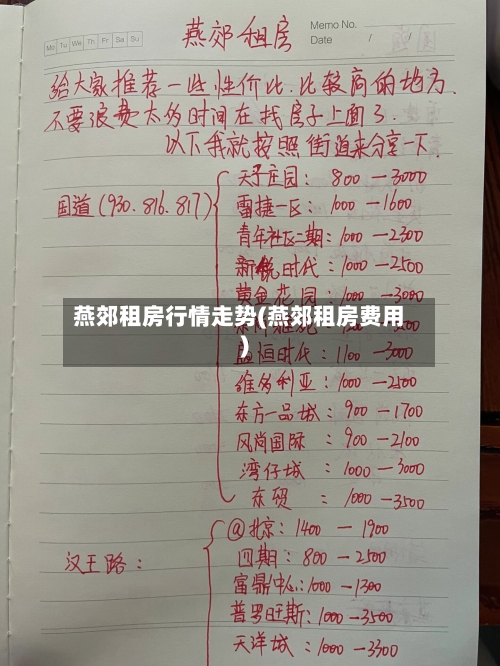 Memo No.
Mo Tu We Th Fr Sa Su
Date / /
燕郊租房
给大家推荐一些性价比比较高的地方.
不要浪费太多时间在找房子上面了.
以下我就按照街道来分享一下.
国道(930.816.817)
天子庄园: 800—3000
雷捷一区: 1000—1600
青年社区二期: 1000—2300
新锐时代: 1000—2500
黄金花园: 1000—3000
燕郊租房行情走势(燕郊租房费用
)
恒时代: 1100—3000
维多利亚: 1000—2500
东方一品城: 900—1700
风尚国际: 900—2100
湾仔城: 1000—3000
东贸: 1000—3500
汉王路:
@北京: 1400—1900
四期: 800—2500
富鼎中心: 1000—1300
普罗旺斯: 1000—3500
天洋城: 1000—3300